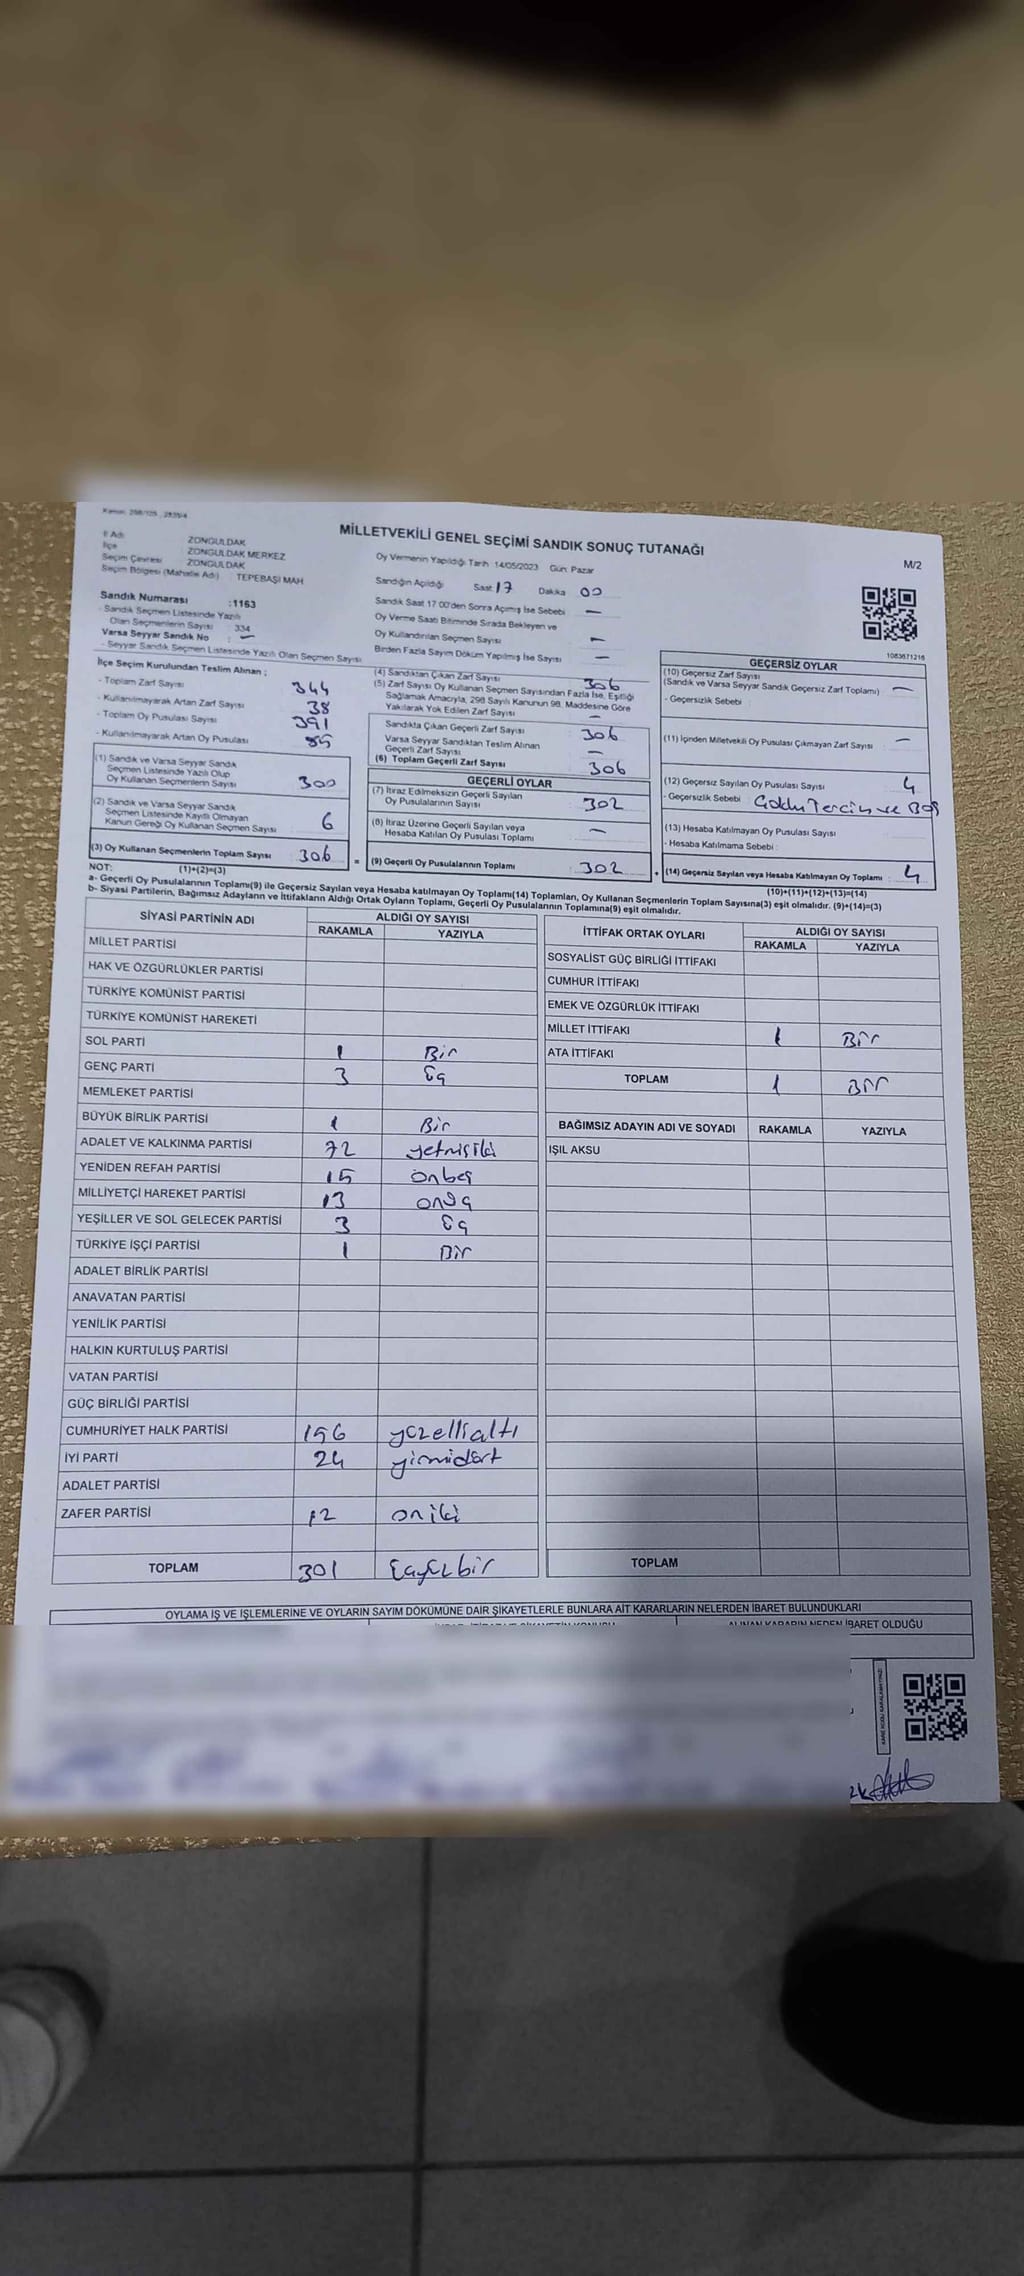 Kanun: 298/105 , 2839/4
MİLLETVEKİLİ GENEL SEÇİMİ SANDIK SONUÇ TUTANAĞI
M/2
İl Adı ZONGULDAK
İlçe ZONGULDAK MERKEZ
Seçim Çevresi ZONGULDAK
Seçim Bölgesi (Mahalle Adı) TEPEBAŞI MAH
Sandık Numarası :1163
- Sandık Seçmen Listesinde Yazılı
Olan Seçmenlerin Sayısı : 334
Varsa Seyyar Sandık No : –
- Seyyar Sandık Seçmen Listesinde Yazılı Olan Seçmen Sayısı
Oy Vermenin Yapıldığı Tarih 14/05/2023 Gün: Pazar
Sandığın Açıldığı Saat 17 Dakika 00
Sandık Saat 17 00'den Sonra Açımış İse Sebebi –
Oy Verme Saati Bitiminde Sırada Bekleyen ve
Oy Kullandırılan Seçmen Sayısı –
Birden Fazla Sayım Döküm Yapılmış İse Sayısı –
1083671216
İlçe Seçim Kurulundan Teslim Alınan ;
- Toplam Zarf Sayısı 344
- Kullanılmayarak Artan Zarf Sayısı 38
- Toplam Oy Pusulası Sayısı 391
- Kullanılmayarak Artan Oy Pusulası 85
(1) Sandık ve Varsa Seyyar Sandık
Seçmen Listesinde Yazılı Olup
Oy Kullanan Seçmenlerin Sayısı 300
(2) Sandık ve Varsa Seyyar Sandık
Seçmen Listesinde Kayıtlı Olmayan
Kanun Gereği Oy Kullanan Seçmen Sayısı 6
(3) Oy Kullanan Seçmenlerin Toplam Sayısı 306
(1)+(2)=(3)
(4) Sandıktan Çıkan Zarf Sayısı 306
(5) Zarf Sayısı Oy Kullanan Seçmen Sayısından Fazla İse, Eşitliği
Sağlamak Amacıyla, 298 Sayılı Kanunun 98. Maddesine Göre
Yakılarak Yok Edilen Zarf Sayısı –
Sandıkta Çıkan Geçerli Zarf Sayısı 306
Varsa Seyyar Sandıktan Teslim Alınan
Geçerli Zarf Sayısı –
(6) Toplam Geçerli Zarf Sayısı 306
GEÇERLİ OYLAR
(7) İtiraz Edilmeksizin Geçerli Sayılan
Oy Pusulalarının Sayısı 302
(8) İtiraz Üzerine Geçerli Sayılan veya
Hesaba Katılan Oy Pusulası Toplamı –
= (9) Geçerli Oy Pusulalarının Toplamı 302
GEÇERSİZ OYLAR
(10) Geçersiz Zarf Sayısı
(Sandık ve Varsa Seyyar Sandık Geçersiz Zarf Toplamı) –
- Geçersizlik Sebebi
(11) İçinden Milletvekili Oy Pusulası Çıkmayan Zarf Sayısı –
(12) Geçersiz Sayılan Oy Pusulası Sayısı 4
- Geçersizlik Sebebi Çoklu Tercin ve Boş
(13) Hesaba Katılmayan Oy Pusulası Sayısı
- Hesaba Katılmama Sebebi
+ (14) Geçersiz Sayılan veya Hesaba Katılmayan Oy Toplamı 4
(10)+(11)+(12)+(13)=(14)
NOT:
a- Geçerli Oy Pusulalarının Toplamı(9) ile Geçersiz Sayılan veya Hesaba katılmayan Oy Toplamı(14) Toplamları, Oy Kullanan Seçmenlerin Toplam Sayısına(3) eşit olmalıdır. (9)+(14)=(3)
b- Siyasi Partilerin, Bağımsız Adayların ve İttifakların Aldığı Ortak Oyların Toplamı, Geçerli Oy Pusulalarının Toplamına(9) eşit olmalıdır.
SİYASİ PARTİNİN ADI ALDIĞI OY SAYISI
RAKAMLA YAZIYLA
MİLLET PARTİSİ
HAK VE ÖZGÜRLÜKLER PARTİSİ
TÜRKİYE KOMÜNİST PARTİSİ
TÜRKİYE KOMÜNİST HAREKETİ
SOL PARTİ 1 Bir
GENÇ PARTİ 3 Üç
MEMLEKET PARTİSİ
BÜYÜK BİRLİK PARTİSİ 1 Bir
ADALET VE KALKINMA PARTİSİ 72 yetmişiki
YENİDEN REFAH PARTİSİ 15 onbeş
MİLLİYETÇİ HAREKET PARTİSİ 13 onüç
YEŞİLLER VE SOL GELECEK PARTİSİ 3 Üç
TÜRKİYE İŞÇİ PARTİSİ 1 Bir
ADALET BİRLİK PARTİSİ
ANAVATAN PARTİSİ
YENİLİK PARTİSİ
HALKIN KURTULUŞ PARTİSİ
VATAN PARTİSİ
GÜÇ BİRLİĞİ PARTİSİ
CUMHURİYET HALK PARTİSİ 156 yüzellialtı
İYİ PARTİ 24 yirmidört
ADALET PARTİSİ
ZAFER PARTİSİ 12 oniki
TOPLAM 301 Üçyüzbir
İTTİFAK ORTAK OYLARI ALDIĞI OY SAYISI
RAKAMLA YAZIYLA
SOSYALİST GÜÇ BİRLİĞİ İTTİFAKI
CUMHUR İTTİFAKI
EMEK VE ÖZGÜRLÜK İTTİFAKI
MİLLET İTTİFAKI 1 Bir
ATA İTTİFAKI
TOPLAM 1 Bir
BAĞIMSIZ ADAYIN ADI VE SOYADI RAKAMLA YAZIYLA
IŞIL AKSU
TOPLAM
OYLAMA İŞ VE İŞLEMLERİNE VE OYLARIN SAYIM DÖKÜMÜNE DAİR ŞİKAYETLERLE BUNLARA AİT KARARLARIN NELERDEN İBARET BULUNDUKLARI
ALINAN KARARIN NEDEN İBARET OLDUĞU